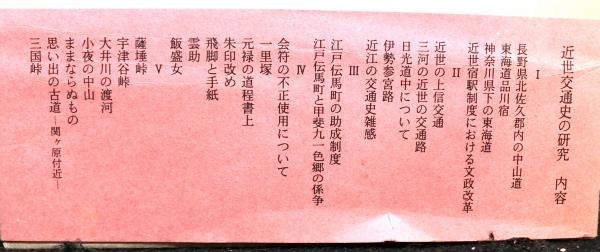 近世交通史の研究 内容
I
長野県北佐久郡内の中山道
東海道品川宿
神奈川県下の東海道
近世宿駅制度における文政改革
II
近世の上信交通
三河の近世の交通路
日光道中について
伊勢参宮路
近江の交通史雑感
III
江戸伝馬町の助成制度
江戸伝馬町と甲斐九一色郷の係争
IV
会符の不正使用について
一里塚
元禄の道程書上
朱印改め
飛脚と手紙
雲助
飯盛女
V
薩埵峠
宇津谷峠
大井川の渡河
小夜の中山
ままならぬもの
思い出の古道―関ヶ原付近―
三国峠